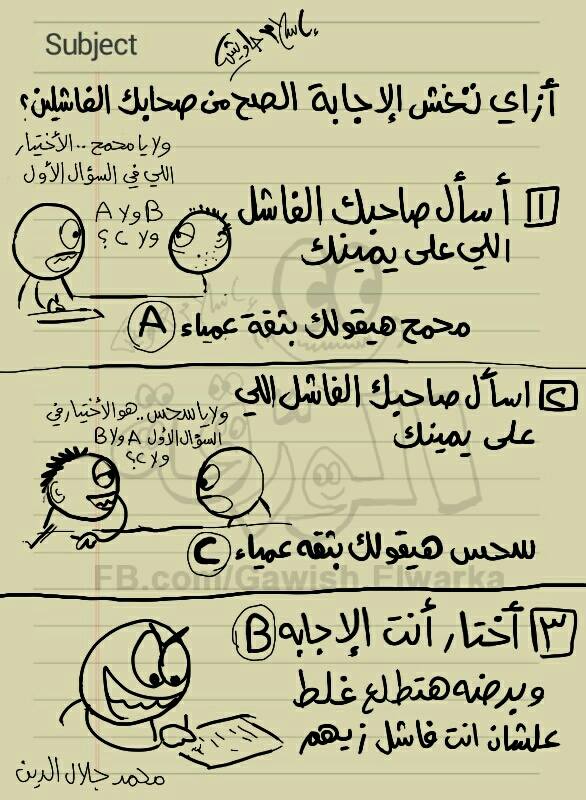 Subject
إسلام جاويش
أزاي تغش الإجابة الصح من صحابك الفاشلين؟
ولا يا محمح .. الأختيار
اللي في السؤال الأول
A ولا B
ولا C؟
١ أسأل صاحبك الفاشل
اللي على يمينك
محمح هيقولك بثقة عمياء A
٢ اسأل صاحبك الفاشل اللي
على يمينك
ولا يا سحس .. هو الأختيار في
السؤال الأول A ولا B
ولا C؟
سحس هيقولك بثقه عمياء C
الورقة
FB.com/Gawish.Elwarka
٣ أختار أنت الإجابه B
وبرضه هتطلع غلط
علشان انت فاشل زيهم
محمد جلال الدين